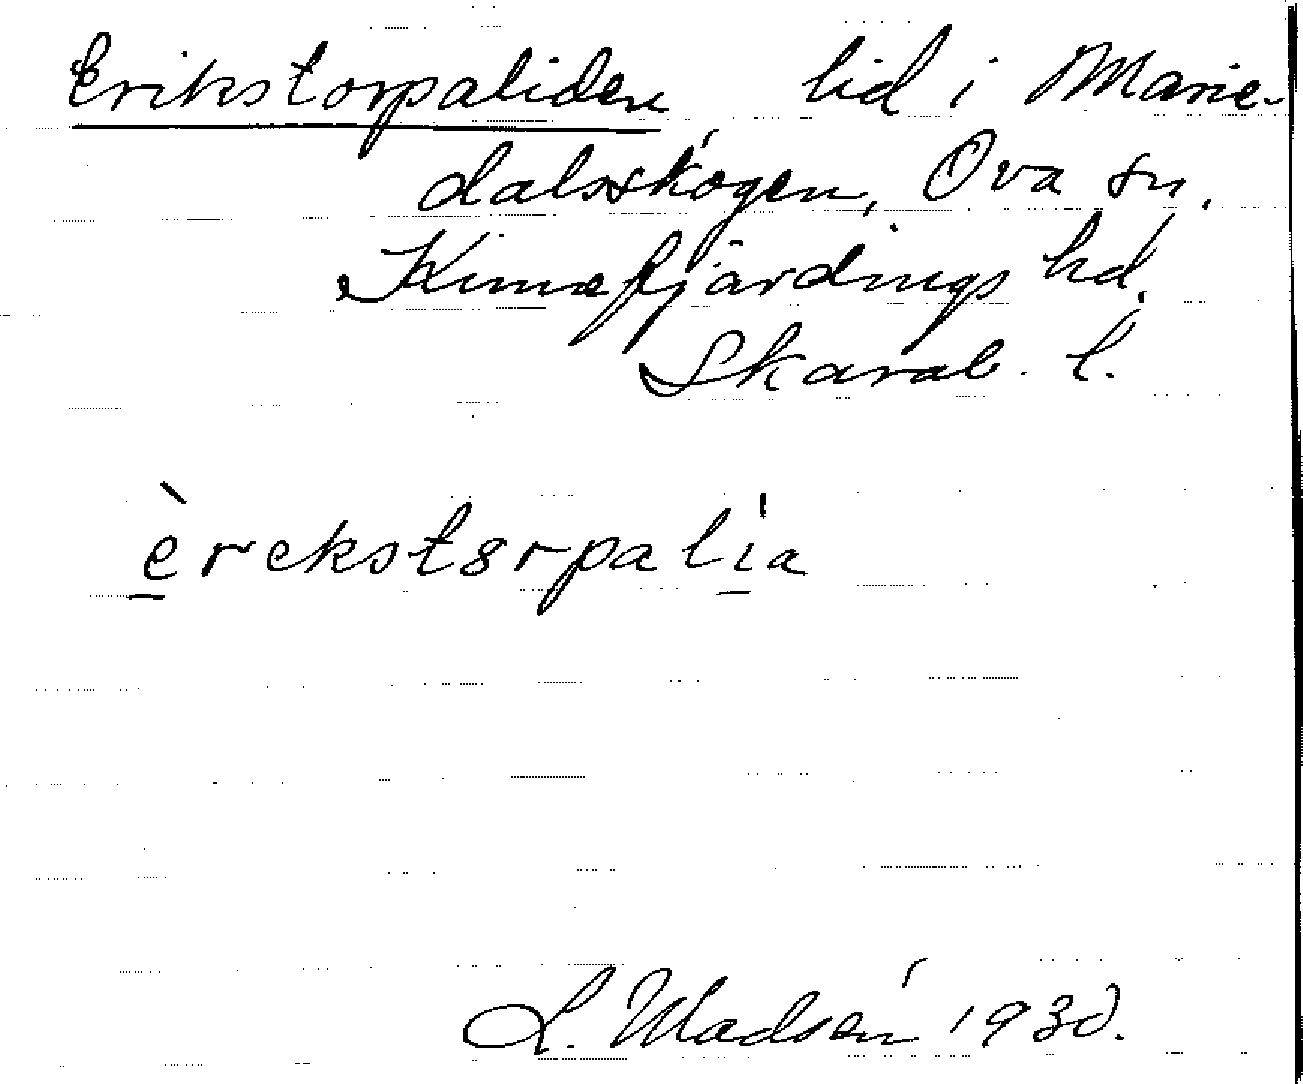 Erikstorpaliden lid i Marie-
dalsskogen, Ova sn,
Kinnefjärdings hd.
Skarab. l.
èrekstorpalia
L. Madsén 1930.